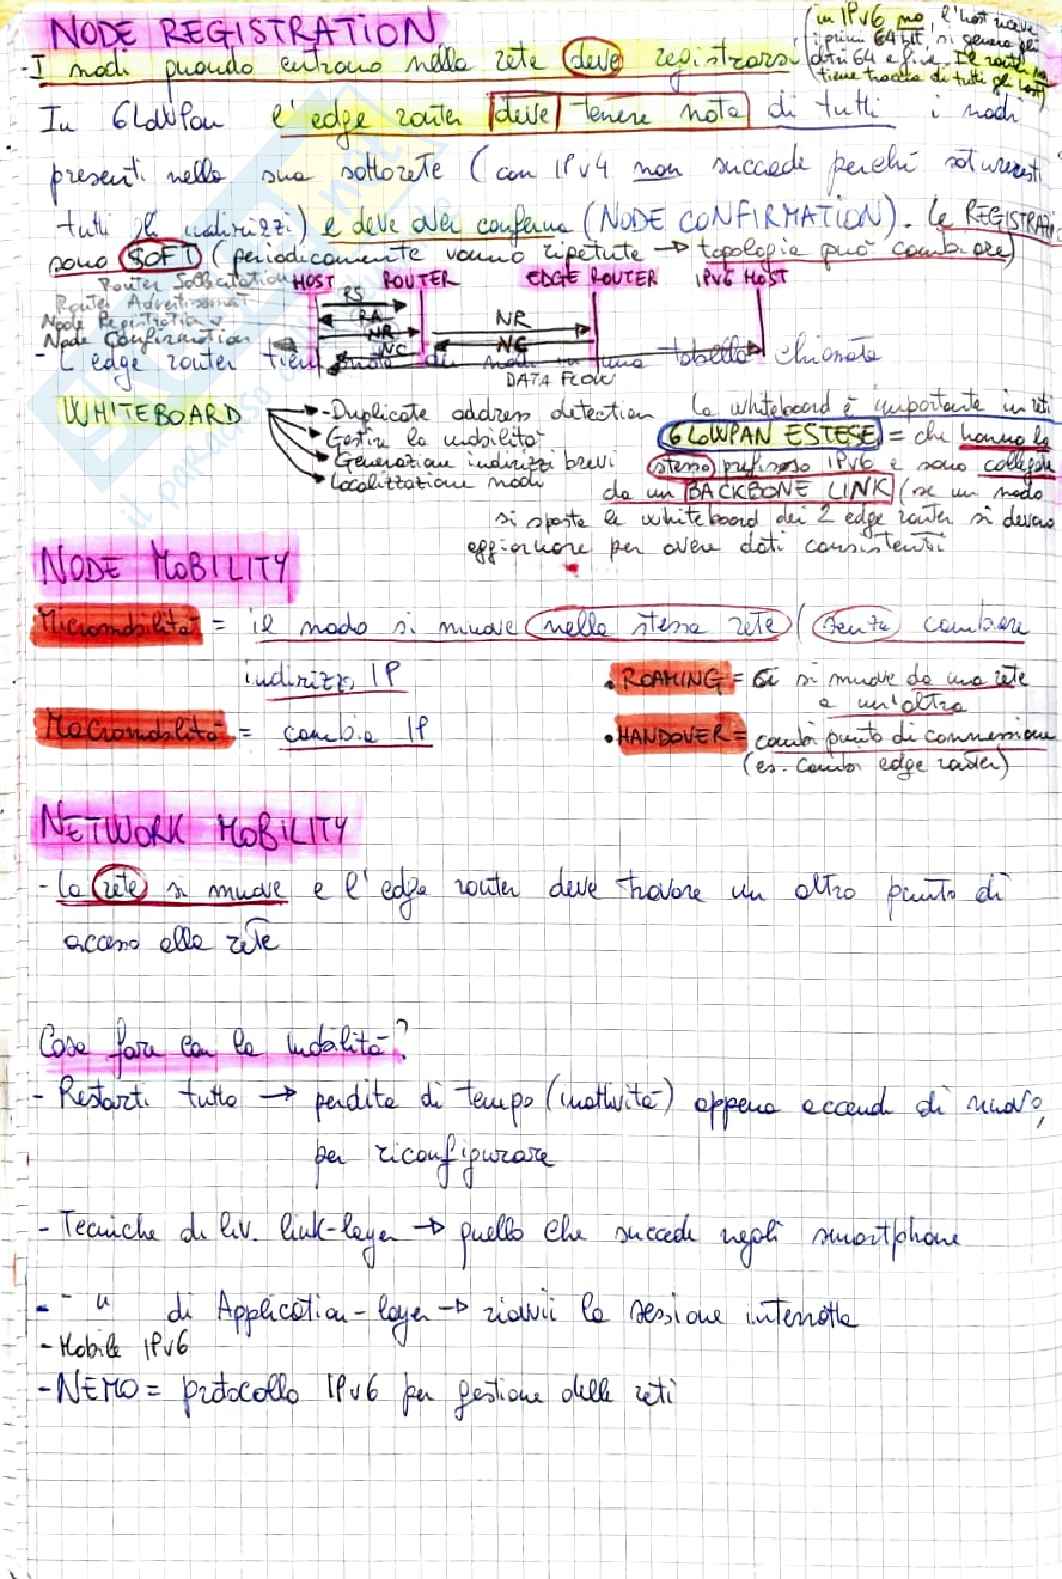 NODE REGISTRATION
(in IPv6 no, l'host riceve
i primi 64 bit, si genera gli
altri 64 e fine. Il router non
tiene traccia di tutti gli host)
- I nodi quando entrano nella rete deve registrarsi
In 6LoWPan l'edge router deve tenere nota di tutti i nodi
presenti nella sua sottorete (con IPv4 non succede perché
tutti gli indirizzi) e deve aver conferma (NODE CONFIRMATION). Le REGISTRAZ
sono SOFT (periodicamente vanno ripetute → topologia può cambiare)
Router Sollicitation
Router Advertisement
Node Registration
Node Confirmation
HOST ROUTER EDGE ROUTER IPV6 HOST
RS
RA
NR NR
NC NC
DATA FLOW
- L'edge router tiene nota dei nodi in una tabella chiamata
WHITEBOARD
- Duplicate address detection
- Gestire la mobilità
- Generazione indirizzi brevi
- Localizzazione nodi
La whiteboard è importante in reti
6LOWPAN ESTESE = che hanno lo
stesso prefisso IPv6 e sono collegate
da un BACKBONE LINK (se un nodo
si sposta le whiteboard dei 2 edge router si devono
aggiornare per avere dati consistenti
NODE MOBILITY
Micromobilità = il nodo si muove nella stessa rete (senza cambiare
indirizzo IP
Macromobilità = cambia IP
• ROAMING = si muove da una rete
a un'altra
• HANDOVER = cambi punto di connessione
(es. cambi edge router)
NETWORK MOBILITY
- la rete si muove e l'edge router deve trovare un altro punto di
accesso alla rete
Cosa fare con la mobilità?
- Restarti tutto → perdita di tempo (inattività) appena accendi di nuovo,
per riconfigurare
- Tecniche di liv. link-layer → quello che succede negli smartphone
- " di Application-layer → riavvii la sessione interrotta
- Mobile IPv6
- NEMO = protocollo IPv6 per gestione delle reti